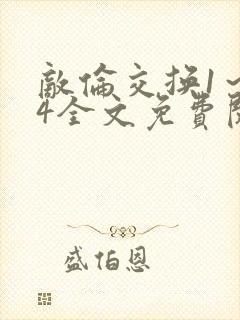 敵倫交换1～
4全文免費閱
盛伯恩